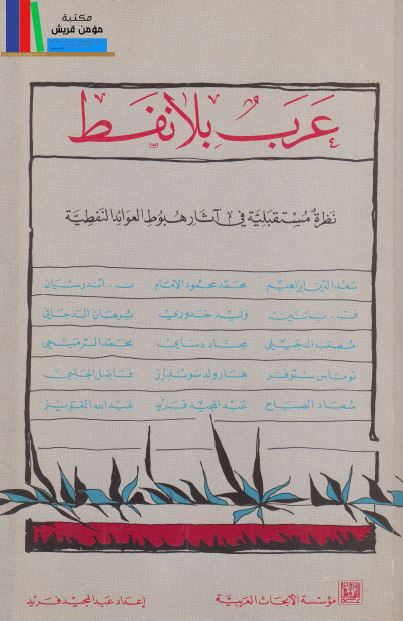 مكتبة
مؤمن قريش
عَرَبٌ بلا نفط
نظرة مستقبلية في آثار هبوط العوائد النفطية
سعد الدين ابراهيم محمد محمود الامام ن. اندرسيان
ف. باتين وليد خدوري برهان الدجاني
مصعب الدجيلي محمد الرميحي
توماس ستوفر هارولد سوندرز فاضل الجلبي
سعاد الصباح عبد المجيد فريد عبد الله القويز
إعداد عبد المجيد فريد مؤسسة الأبحاث العربية